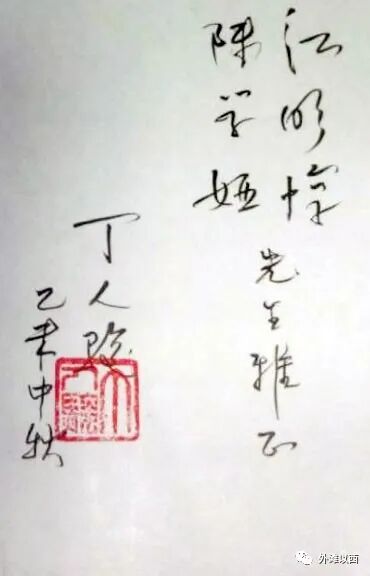 江明惇
陈学娅
先生雅正
丁人
乙未中秋
外滩以西